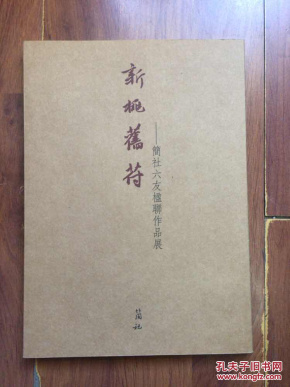 新桃舊符
——簡社六友楹聯作品展
簡社
孔夫子旧书网